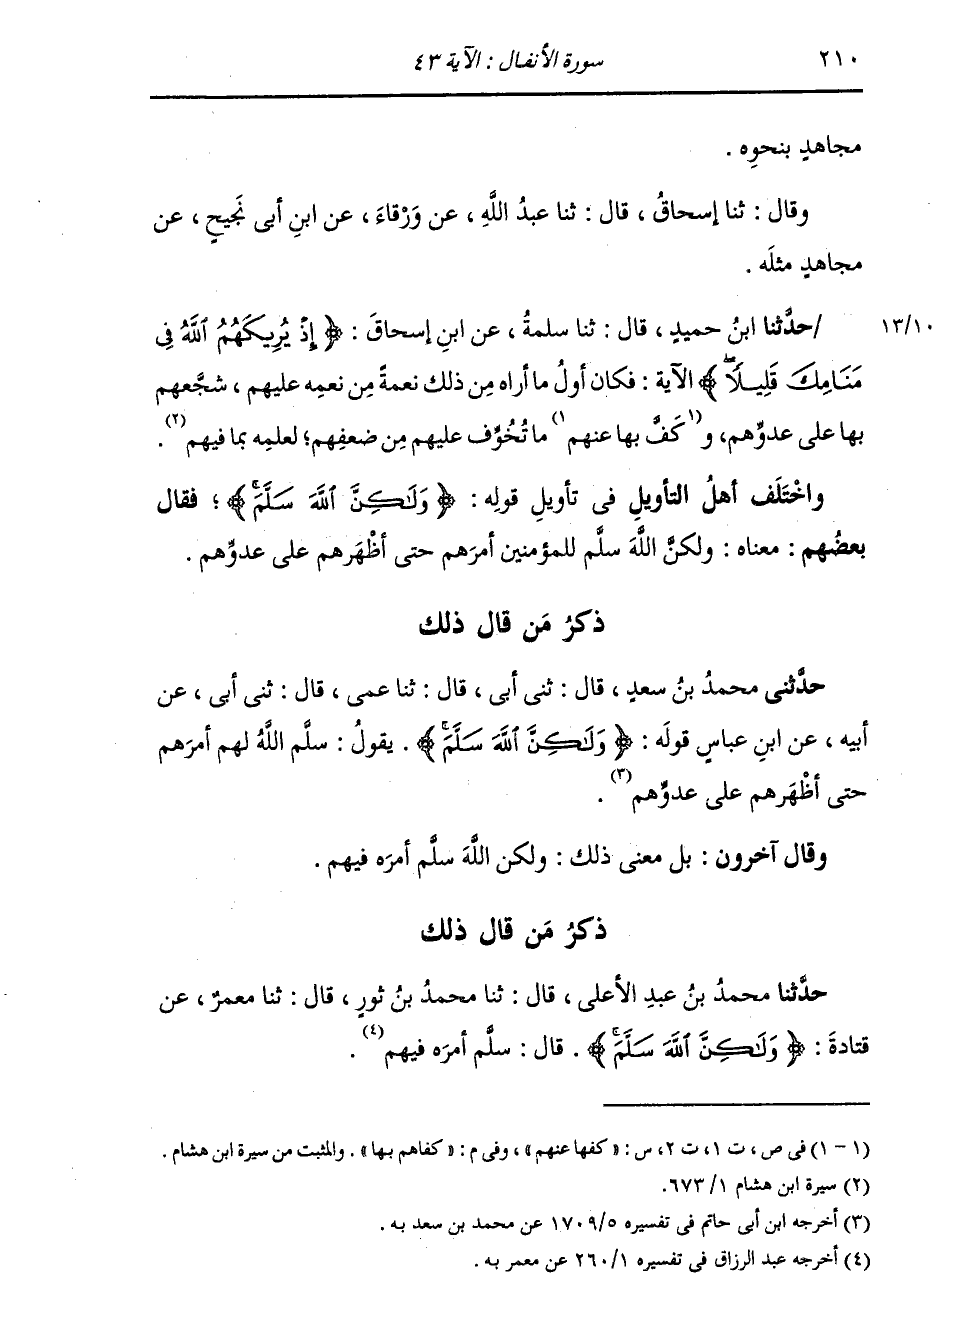 ٢١٠ سورة الأنفال : الآية ٤٣
مجاهدٍ بنحوِه .
وقال : ثنا إسحاقُ ، قال : ثنا عبدُ اللَّهِ ، عن وَرْقاءَ ، عن ابنِ أبى نَجيحٍ ، عن
مجاهدٍ مثلَه .
١٣/١٠ /حدَّثنا ابنُ حميدٍ ، قال : ثنا سلمةُ ، عن ابنِ إسحاقَ : ﴿ إِذْ يُرِيكَهُمُ ٱللَّهُ فِى
مَنَامِكَ قَلِيلًاۖ ﴾ الآية : فكان أولُ ما أراه مِن ذلك نعمةً مِن نعمِه عليهم ، شجَّعهم
بها على عدوِّهم، و(١ كَفَّ بها عنهم ١) ما تُخُوِّف عليهم مِن ضعفِهم؛ لعلمِه بما فيهم(٢).
واخْتَلَف أهلُ التأويلِ فى تأويلِ قولِه : ﴿ وَلَٰكِنَّ ٱللَّهَ سَلَّمَۚ ﴾ ؛ فقال
بعضُهم : معناه : ولكنَّ اللَّهَ سلَّم للمؤمنين أمرَهم حتى أظْهَرهم على عدوِّهم .
ذكرُ مَن قال ذلك
حدَّثنى محمدُ بنُ سعدٍ ، قال : ثنى أبى ، قال : ثنا عمى ، قال : ثنى أبى ، عن
أبيه ، عن ابنِ عباسٍ قولَه : ﴿ وَلَٰكِنَّ ٱللَّهَ سَلَّمَۚ ﴾ . يقولُ : سلَّم اللَّهُ لهم أمرَهم
حتى أظْهَرهم على عدوِّهم(٣) .
وقال آخرون : بل معنى ذلك : ولكن اللَّهَ سلَّم أمرَه فيهم .
ذكرُ مَن قال ذلك
حدَّثنا محمدُ بنُ عبدِ الأعلى ، قال : ثنا محمدُ بنُ ثورٍ ، قال : ثنا معمرٌ ، عن
قتادةَ : ﴿ وَلَٰكِنَّ ٱللَّهَ سَلَّمَۚ ﴾ . قال : سلَّم أمرَه فيهم(٤) .
(١ - ١) فى ص ، ت ١، ت ٢، س : « كفها عنهم » ، وفى م : « كفاهم بها» . والمثبت من سيرة ابن هشام .
(٢) سيرة ابن هشام ١/ ٦٧٣.
(٣) أخرجه ابن أبى حاتم فى تفسيره ١٧٠٩/٥ عن محمد بن سعد به .
(٤) أخرجه عبد الرزاق فى تفسيره ٢٦٠/١ عن معمر به .